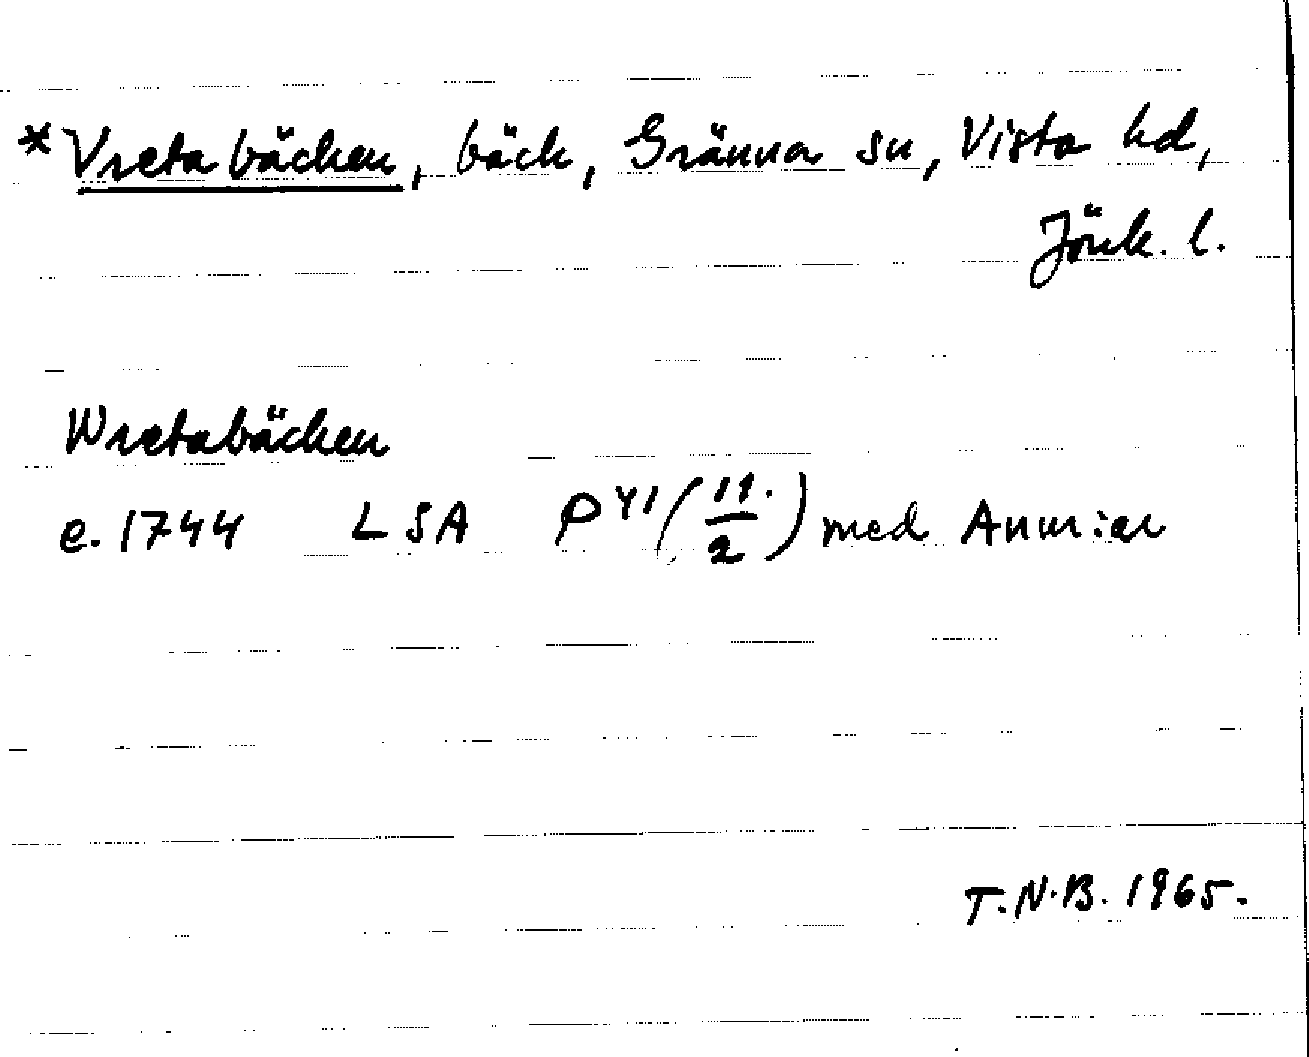 *Vretabäcken, bäck, Gränna sn, Vista hd,
Jönk. l.
Wretabäcken
e. 1744 LSA P41 (11./2) med Anm:ar
T.N.B. 1965.